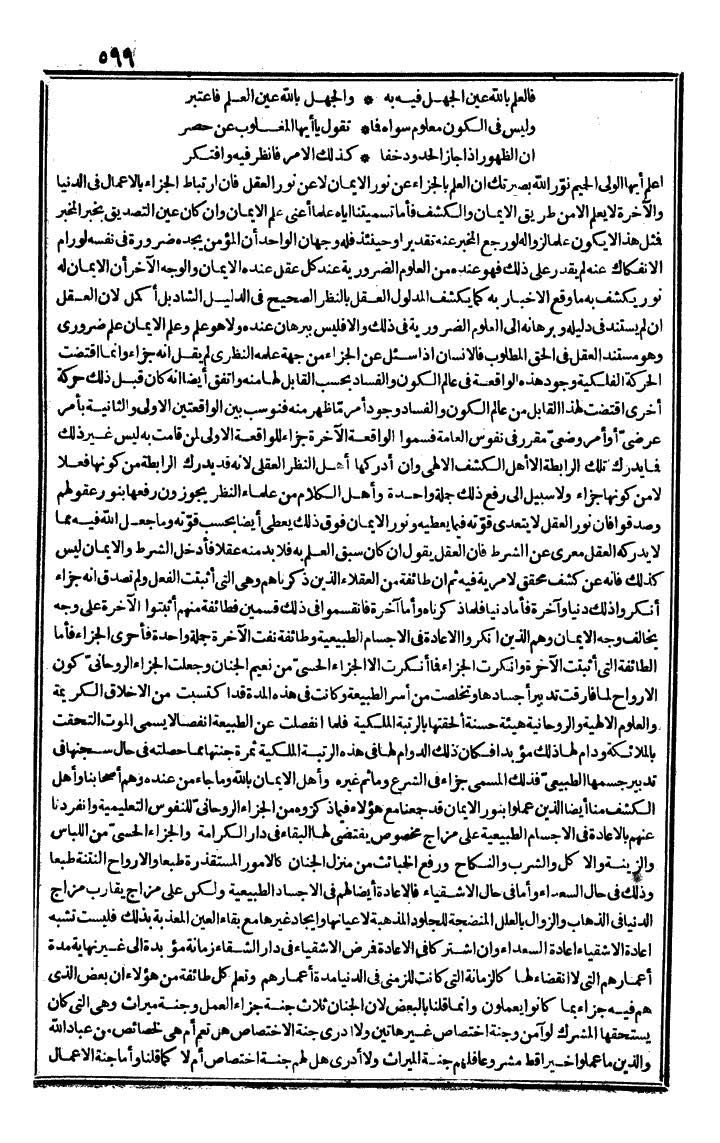 ٥٩٩
فالعلم بالله عين الجهل فيه به * والجهل بالله عين العلم فاعتبر
وليس فى الكون معلوم سواه فا * تقول ياأيها المغلوب عن حصر
ان الظهور اذا جاز الحدود خفا * كذلك الامر فانظر فيه وافتكر
اعلم أيها الولى الحميم نوّر الله بصيرتك ان العلم بالجزاء عن نور الايمان لاعن نور العقل فان ارتباط الجزاء بالاعمال فى الدنيا
والآخرة لايعلم الامن طريق الايمان والكشف فأما تسميتنا اياه علما أعنى علم الايمان وان كان عين التصديق بخبر المخبر
فمثل هذا لايكون علما لزواله لو رجع المخبر عنه تقديرا وحينئذ فله وجهان الواحد أن المؤمن يجده ضرورة فى نفسه لو رام
الانفكاك عنه لم يقدر على ذلك فهو عنده من العلوم الضرورية عند كل عقل عنده الايمان والوجه الآخر أن الايمان له
نور يكشف به ماوقع الاخبار به كما يكشف المدلول العقل بالنظر الصحيح فى الدليل الشاد بل أكمل لان العقل
ان لم يستند فى دليله وبرهانه الى العلوم الضرورية فى ذلك والافليس ببرهان عنده ولاهو علم وعلم الايمان علم ضرورى
وهو مستند العقل فى الحق المطلوب فالانسان اذا سئل عن الجزاء من جهة علمه النظرى لم يقل انه جزاء وانما اقتضت
الحركة الفلكية وجود هذه الواقعة فى عالم الكون والفساد بحسب القابل لها منه واتفق أيضا انه كان قبل ذلك حركة
أخرى اقتضت لهذا القابل من عالم الكون والفساد وجود أمر تما ظهر منه فنوسب بين الواقعتين الاولى والثانية بأمر
عرضىّ أو أمر وضعىّ مقرر فى نفوس العامة فسموا الواقعة الآخرة جزاء للواقعة الاولى لمن قامت به ليس غير ذلك
فمايدرك تلك الرابطة الاأهل الكشف الالهى وان أدركها أهل النظر العقلى لانه قديدرك الرابطة من كونها فعلا
لامن كونها جزاء ولاسبيل الى رفع ذلك جلة واحدة وأهل الكلام من علماء النظر يجوزون رفعها بنور عقولهم
وصدقوا فان نور العقل لايتعدى قوّته فيما يعطيه ونور الايمان فوق ذلك يعطى أيضا بحسب قوّته وماجعل الله فيه مما
لايدركه العقل معرى عن الشرط فان العقل يقول ان كان سبق العلم به فلابد منه عقلا فأدخل الشرط والايمان ليس
كذلك فانه عن كشف محقق لامرية فيه ثم ان طائفة من العقلاء الذين ذكرناهم وهى التى أثبتت الفعل ولم تصدق انه جزاء
أنكروا ذلك دنيا وآخرة فأما دنيا فلما ذكرناه وأما آخرة فانقسموا فى ذلك قسمين فطائفة منهم أثبتوا الآخرة على وجه
يخالف وجه الايمان وهم الذين انكروا الاعادة فى الاجسام الطبيعية وطائفة نفت الآخرة جلة واحدة فأحرى الجزاء فأما
الطائفة التى أثبتت الآخرة وانكرت الجزاء فأنكرت الا الجزاء الحسىّ من نعيم الجنان وجعلت الجزاء الروحانىّ كون
الارواح لما فارقت تدبير أجسادها وتخلصت من أسر الطبيعة وكانت فى هذه المدة قد اكتسبت من الاخلاق الكريمة
والعلوم الالهية والروحانية هيئة حسنة ألحقتها بالرتبة الملكية فلما انفصلت عن الطبيعة انفصالا يسمى الموت التحقت
بالملائكة ودام لها ذلك مؤبدا فكان ذلك الدوام لها فى هذه الرتبة الملكية ثمرة جنتها مما حصلته فى حال سجنها فى
تدبير جسمها الطبيعىّ فذلك المسمى جزاء فى الشرع وماثم غيره وأهل الايمان بالله وماجاء من عنده وهم أصحابنا وأهل
الكشف منا أيضا الذين عملوا بنور الايمان قد جعنا مع هؤلاء فيما ذكروه من الجزاء الروحانىّ للنفوس التعليمية وانفردنا
عنهم بالاعادة فى الاجسام الطبيعية على مزاج مخصوص يقتضى لها البقاء فى دار الكرامة والجزاء الحسىّ من اللباس
والزينة والاكل والشرب والنكاح ورفع الخبائث من منزل الجنان كالامور المستقذرة طبعا والارواح النتنة طبعا
وذلك فى حال السعداء وأما فى حال الاشقياء فالاعادة أيضا لهم فى الاجساد الطبيعية ولكن على مزاج يقارب مزاج
الدنيا فى الذهاب والزوال بالعلل المنضجة للجلود المذهبة لاعيانها وايجاد غيرها مع بقاء العين المعذبة بذلك فليست تشبه
اعادة الاشقياء اعادة السعداء وان اشتركا فى الاعادة فرض الاشقياء فى دار الشقاء زمانة مؤبدة الى غير نهاية مدة
أعمارهم التى لاانقضاء لها كالزمانة التى كانت للزمنى فى الدنيا مدة أعمارهم ونعلم كل طائفة من هؤلاء ان بعض الذى
هم فيه جزاء بما كانوا يعملون وانما قلنا بالبعض لان الجنان ثلاث جنة جزاء العمل وجنة ميراث وهى التى كان
يستحقها المشرك لو آمن وجنة اختصاص غير هاتين ولاادرى جنة الاختصاص هل تعم أم هى لخصائص من عباد الله
والذين ماعملوا خيرا قط مشروعا فلهم جنة الميراث ولاأدرى هل لهم جنة اختصاص أم لا كما قلنا وأما جنة الاعمال